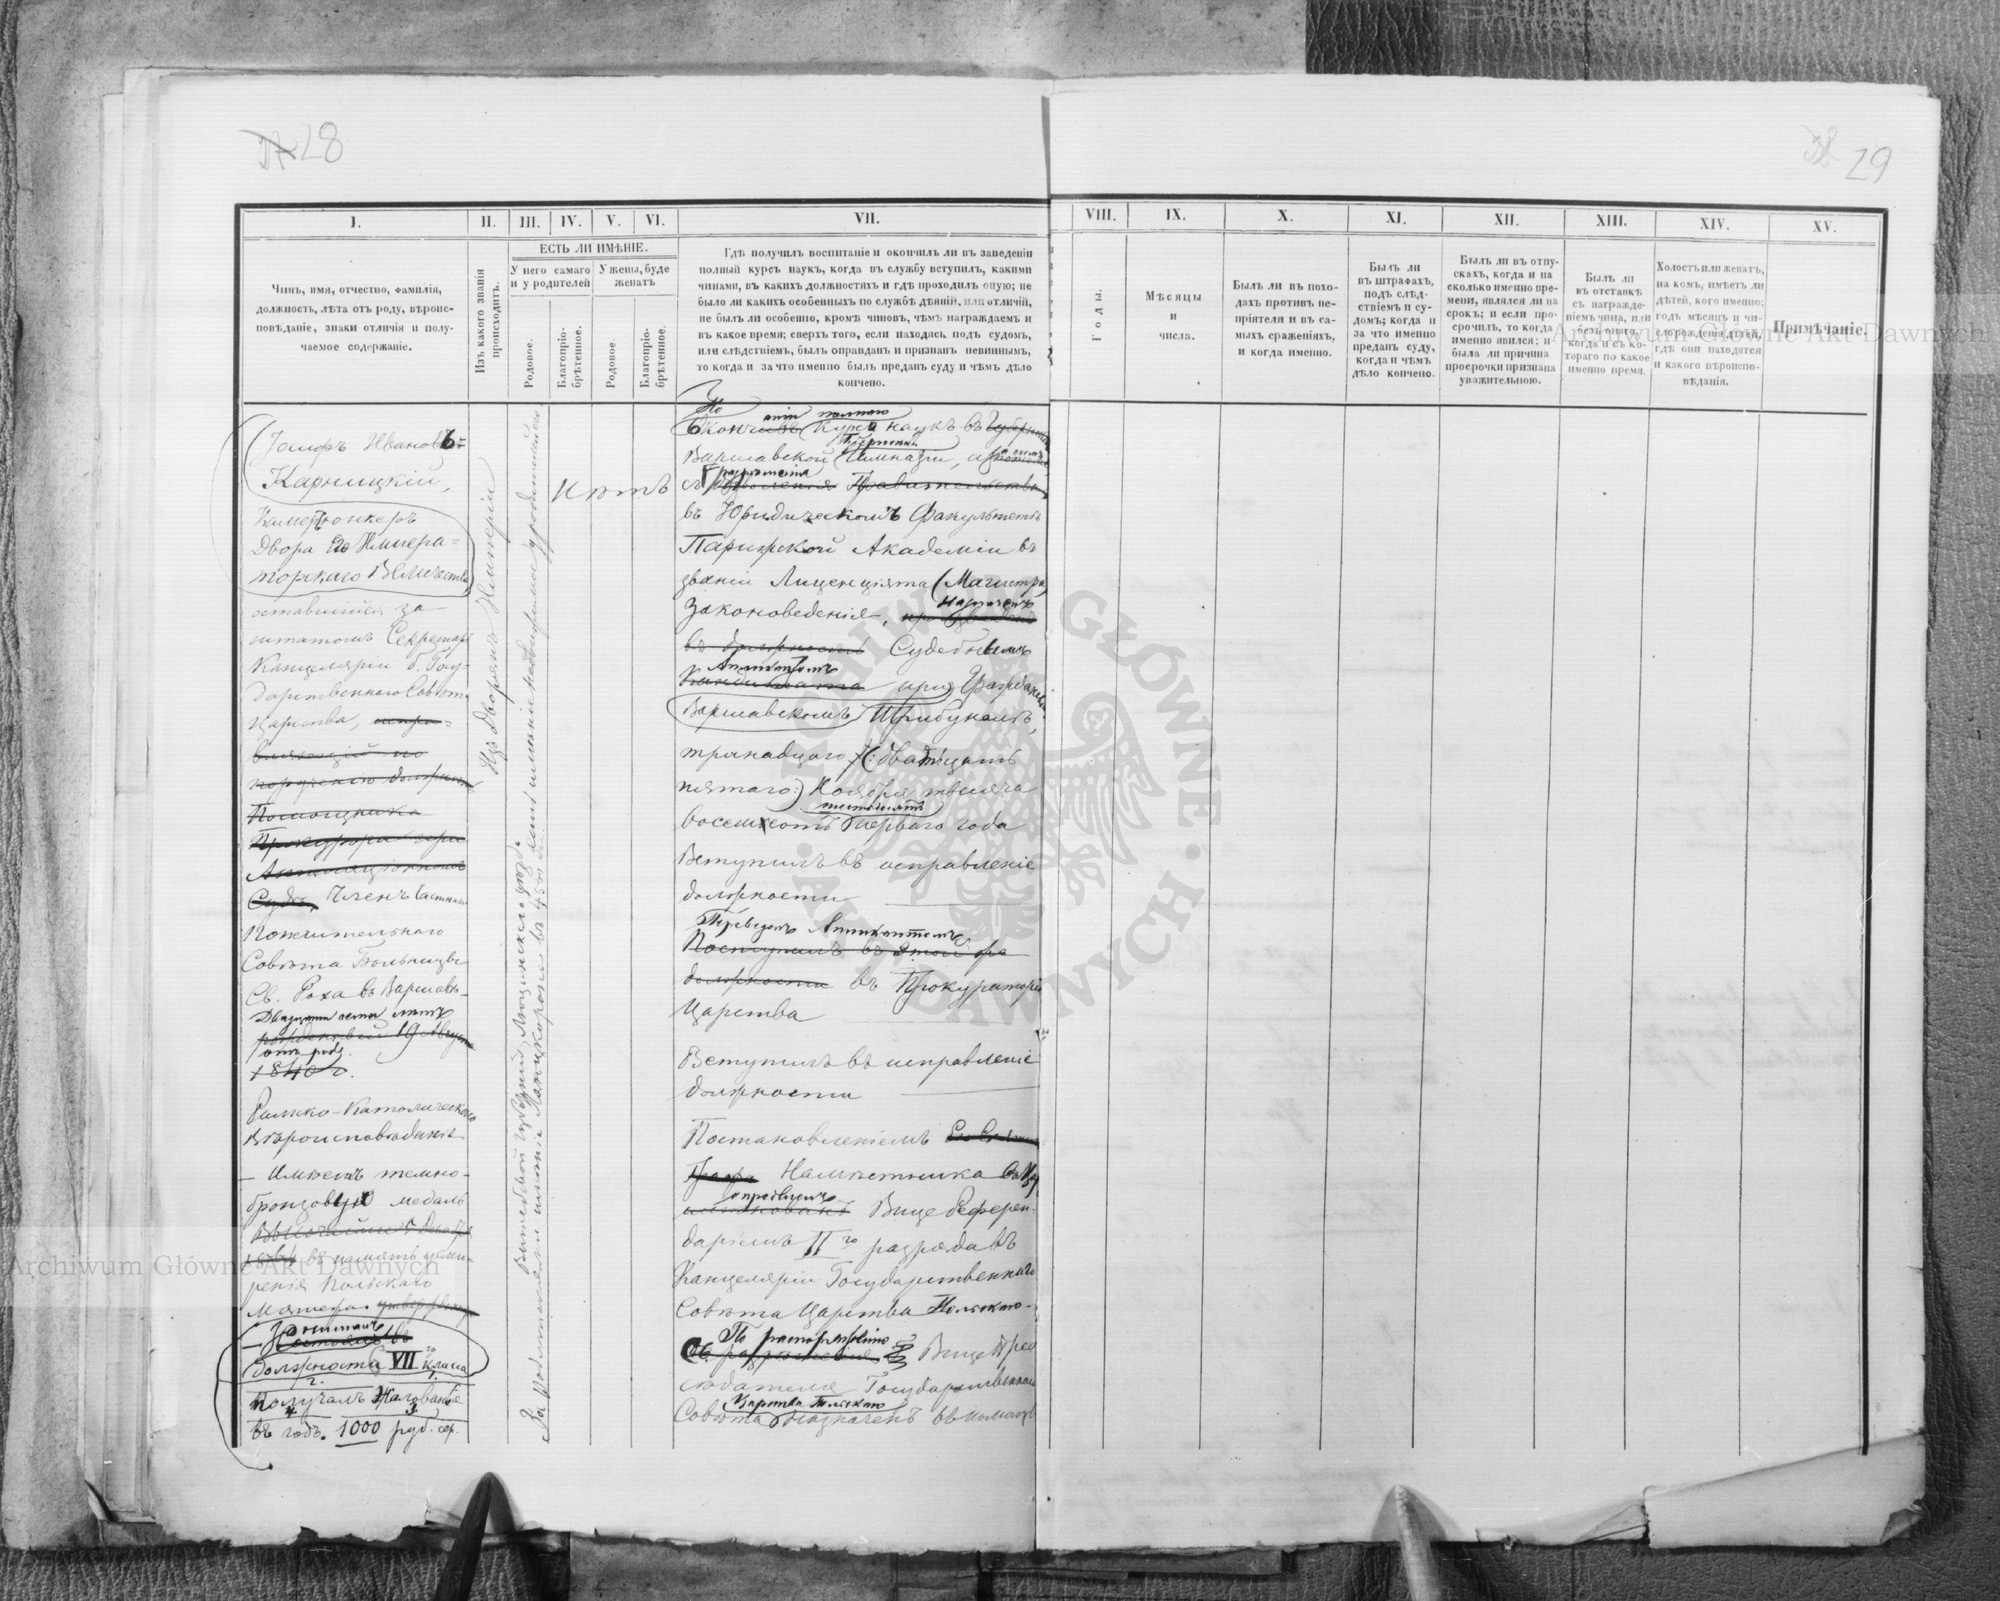 28
29
I.
II.
III.
IV.
V.
VI.
VII.
VIII.
IX.
X.
XI.
XII.
XIII.
XIV.
XV.
Чинъ, имя, отчество, фамилія,
должность, лѣта отъ роду, вѣроис-
повѣданіе, знаки отличія и полу-
чаемое содержаніе.
Изъ какого званія
происходитъ.
ЕСТЬ ЛИ ИМѢНІЕ.
У него самаго
и у родителей
У жены, буде
женатъ
Родовое.
Благопріо-
брѣтенное.
Родовое.
Благопріо-
брѣтенное.
Гдѣ получилъ воспитаніе и окончилъ ли въ заведеніи
полный курсъ наукъ, когда въ службу вступилъ, какими
чинами, въ какихъ должностяхъ и гдѣ проходилъ оную; не
было ли какихъ особенныхъ по службѣ дѣяній, или отличій,
не былъ ли особенно, кромѣ чиновъ, чѣмъ награждаемъ и
въ какое время; сверхъ того, если находясь подъ судомъ,
или слѣдствіемъ, былъ оправданъ и признанъ невиннымъ,
то когда и за что именно былъ преданъ суду и чѣмъ дѣло
кончено.
Годы.
Мѣсяцы
и
числа.
Былъ ли въ похо-
дахъ противъ не-
пріятеля и въ са-
мыхъ сраженіяхъ,
и когда именно.
Былъ ли
въ штрафахъ,
подъ слѣд-
ствіемъ и су-
домъ; когда и
за что именно
преданъ суду,
когда и чѣмъ
дѣло кончено.
Былъ ли въ отпу-
скахъ, когда и на
сколько именно вре-
мени, являлся ли на
срокъ; и если про-
срочилъ, то когда
именно явился; и
была ли причина
просрочки признана
уважительною.
Былъ ли
въ отставкѣ
съ награжде-
ніемъ чина, или
безъ онаго,
когда и съ ко-
тораго по какое
именно время.
Холостъ или женатъ,
на комъ, имѣетъ ли
дѣтей, кого именно;
годъ мѣсяцъ и чи-
сло рожденія дѣтей,
гдѣ они находятся
и какого вѣроиспо-
вѣданія.
Примѣчаніе.
Іосифъ Ивановъ
Карницкій,
Камеръюнкеръ
Двора Его Импера-
торскаго Величества
оставшійся за
штатомъ Секретарь
Канцеляріи б. Госу-
дарственнаго Совѣта
Царства, испра-
вляющій по
порученію должн
Помощника
Прокурора при
Аппеляціонномъ
Судѣ, Членъ Частнаго
Попечительнаго
Совѣта Больницы
Св. Роха въ Варшавѣ
Двадцати семи лѣтъ
рожденный 19 Августа
отъ роду.
1840 г.
Римско-Католическаго
вѣроисповѣданія
Имѣетъ темно-
бронзовую медаль
въ память усми-
ренія Польскаго
Мятежа
Занималъ
должность VII го класса
Получалъ Жалованіе
въ годъ. 1000 руб. сер.
Изъ Дворянъ Имперіи
Нѣтъ
По
Окончаніи полнаго курса наукъ въ Губернской
Варшавской Гимназіи, а
съ разрѣшенія Правительства
въ Юридическомъ Факультетѣ
Парижской Академіи въ
званіи Лиценціята (Магистра)
Законовѣденія, назначенъ
въ должность Судебнымъ
Аппликантомъ
при Гражданскомъ
Варшавскомъ Трибуналѣ,
тринадцаго (: двадцать
пятаго:) Ноября тысяча
восемьсотъ шестьдесятъ перваго года
Вступилъ въ исправленіе
должности
Переведенъ Аппликантомъ
Поступилъ въ этой же
должности въ Прокураторію
Царства
Вступилъ въ исправленіе
должности
Постановленіемъ
Графа Намѣстника
опредѣленъ Вице Референ-
даріемъ II го разряда въ
Канцеляріи Государственнаго
Совѣта Царства Польскаго
По распоряженію Вице Пред
сѣдателя Государственнаго
Царства Польскаго
Совѣта назначенъ
Archiwum Główne Akt Dawnych
Archiwum Główne Akt Dawnych
ARCHIWUM GŁÓWNE AKT DAWNYCH